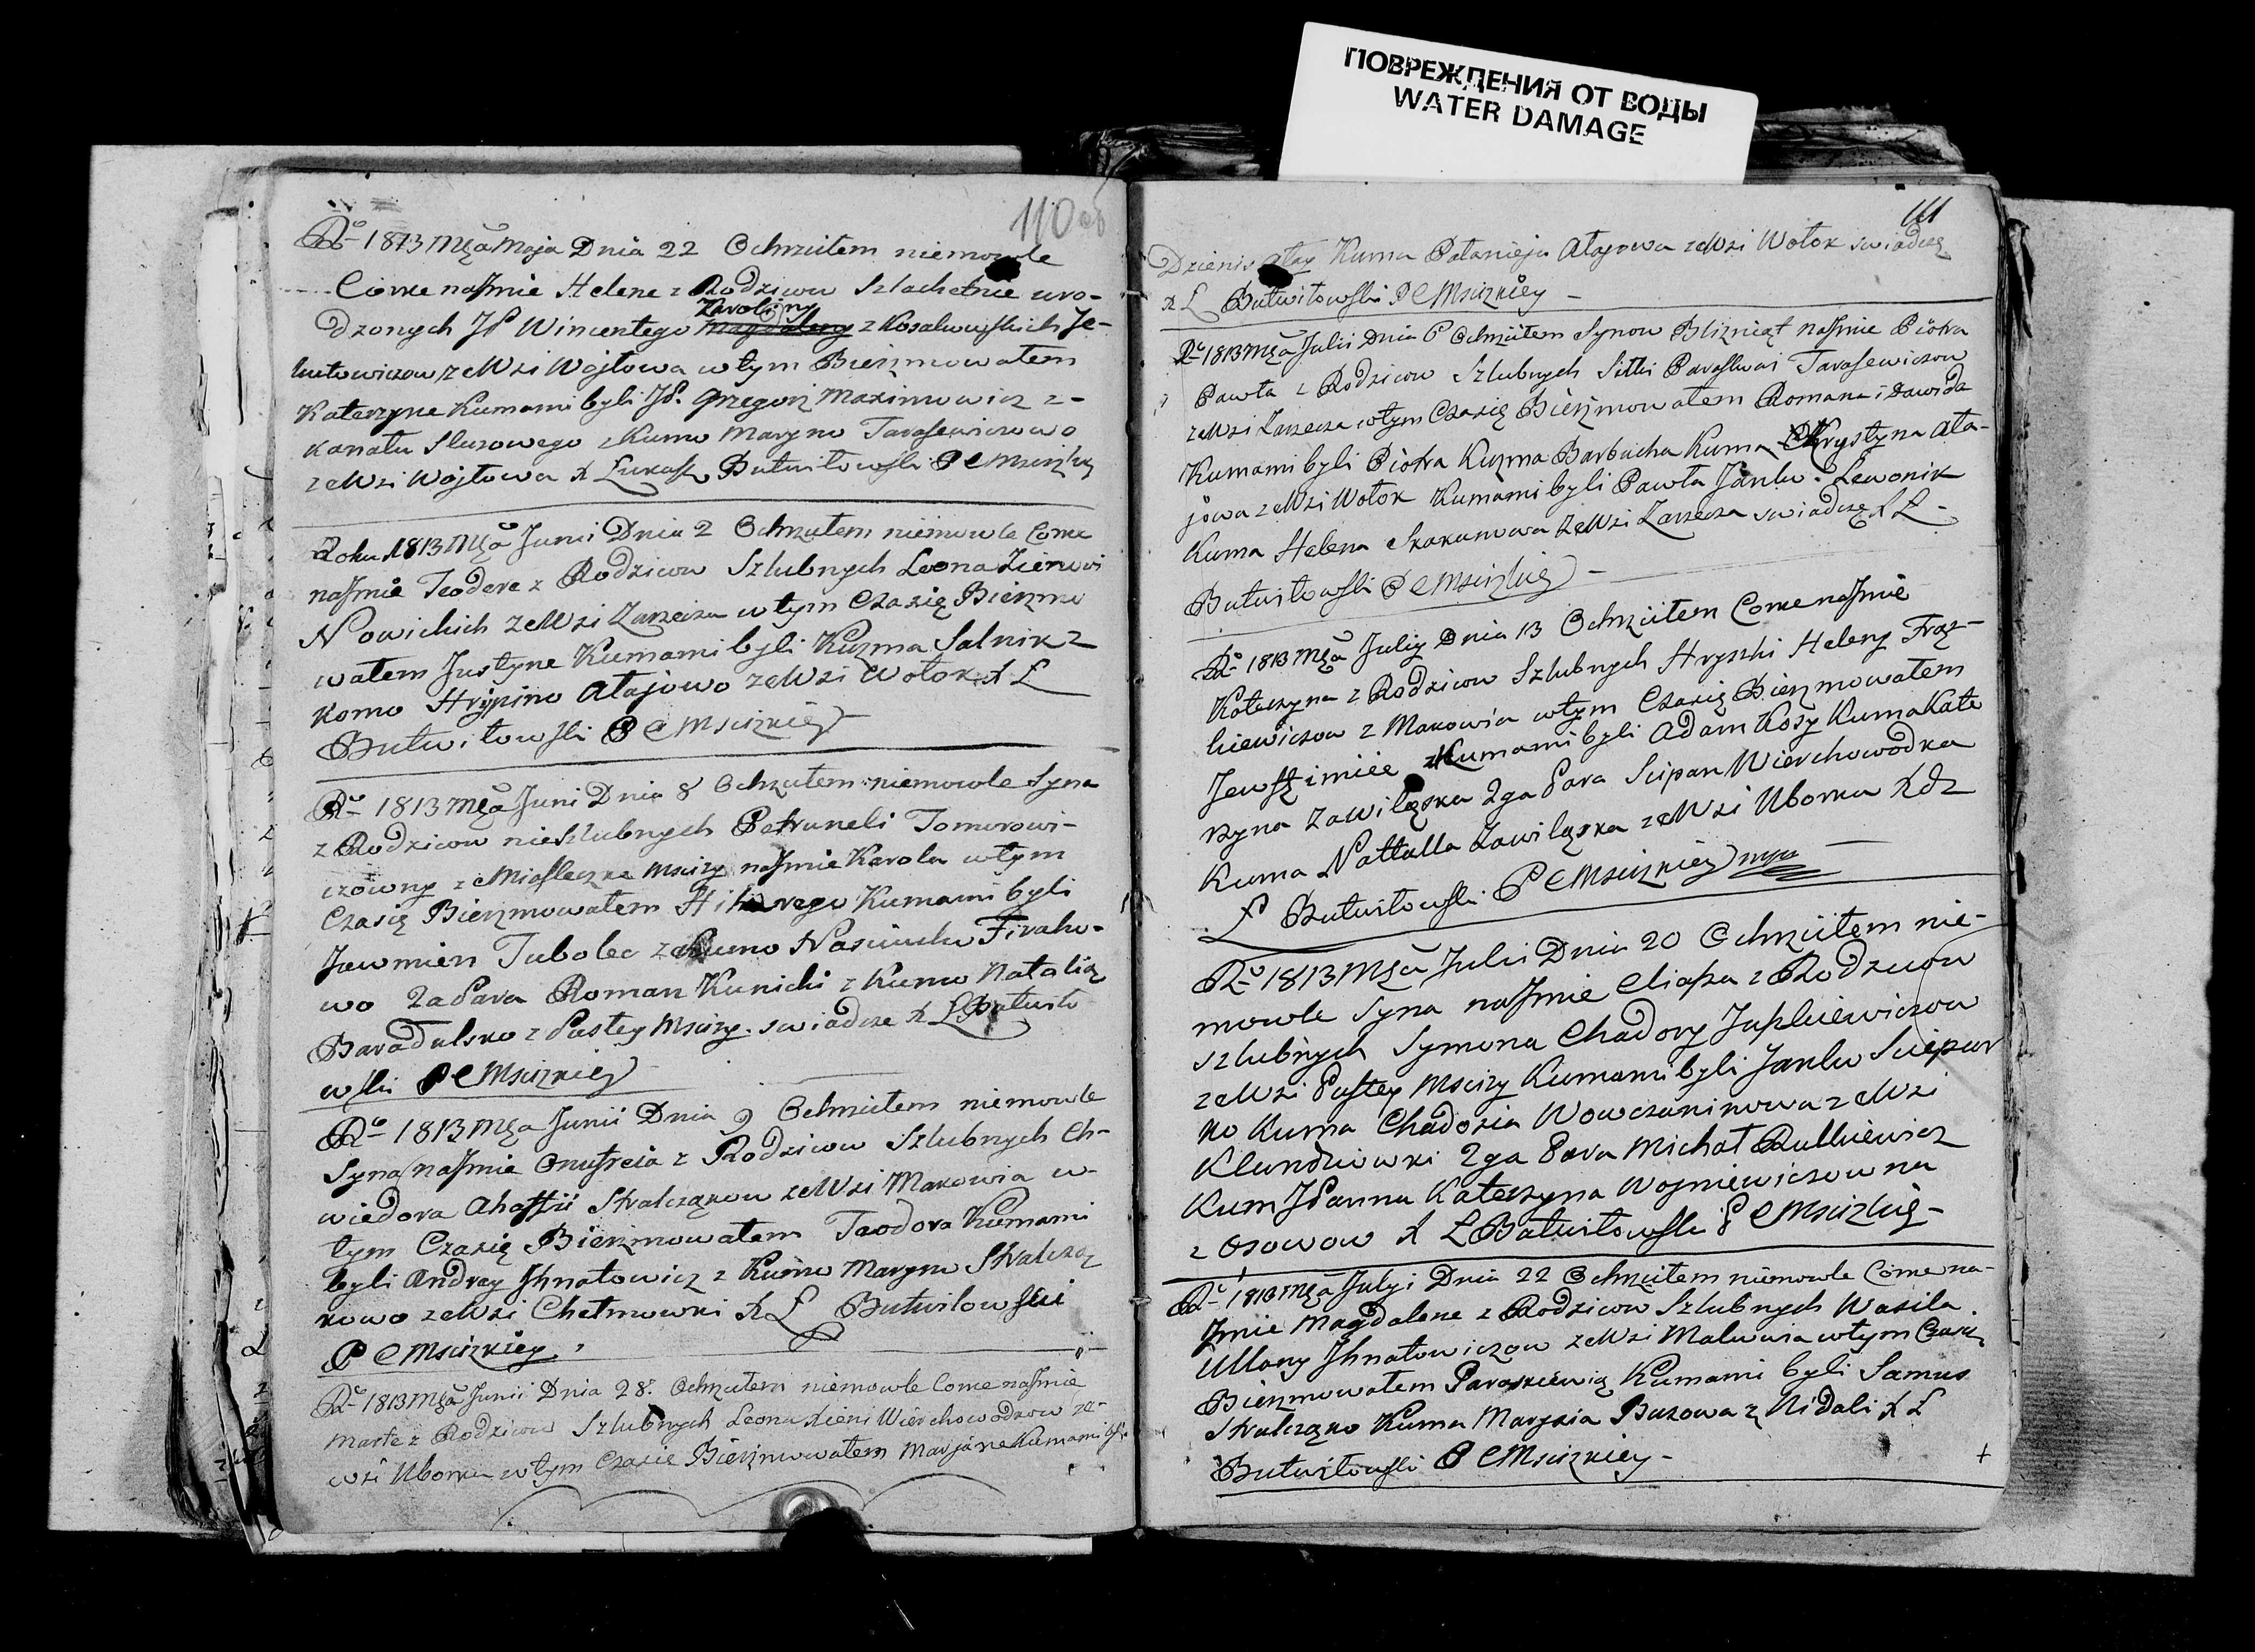 ПОВРЕЖДЕНИЯ ОТ ВОДЫ
WATER DAMAGE
110 об
Rº 1813 Mca Maja Dnia 22 Ochrzciłem niemowle
Córke na Jmie Helene z Rodzicow Szlachetnie uro-
Karoliny
dzonych JP Wincentego Magdaleny z Kosakowskich Je-
ze Wsi Wojtowa w tym Bierzmowałem
Katerzyne Kumami byli JP. Grzegorz Maximowicz z
Kanału z Kumo Maryno Tarasewiczowo
ze Wsi Wojtowa X Łukasz Butwiłowski P C Mscizki
Roku 1813 Mca Junii Dnia 2 Ochrzciłem niemowle Corke
na Jmie Teodore z Rodzicow Szlubnych Leona
Nowickich ze Wsi Zarzecza w tym Czasię Bierzmo
wałem Justyne Kumami byli Kuzma Salnik z
Kumo Hrypino Atajowo ze Wsi Wołok X Ł
Butwiłowski P C Mscizkiey
Rº 1813 Mca Juni Dnia 8 Ochrzciłem niemowle Syna
z Rodzicow nieszlubnych Petruneli Tomorowi-
czowny z Miasteczka Mscizy na Jmie Karola w tym
Czasię Bierzmowałem Kumami byli
Tubolec z Kumo
wo 2a Para Roman Kunicki z Kumo Natalią
Baradulsko z Pastey Mscizy swiadcze X Ł Butwiło
wski P C Mscizkiey
Rº 1813 Mca Junii Dnia 9 Ochrzciłem niemowle
Syna na Jmie Onufreia z Rodzicow Szlubnych Ch-
wiedora Ahafii Stralcząkow ze Wsi Makowia w
tym Czasię Bierzmowałem Teodora Kumami
byli Andrzey Jhnatowicz z Kumo Maryno Stralczą
kowo ze Wsi Chełmowki X Ł Butwiłowski
P C Mscizkiey
Rº 1813 Mca Junii Dnia 28. Ochrzciłem niemowle Corke na Jmie
Marte z Rodzicow Szlubnych Leona Xieni Wierchowodkow ze
wsi Uborku w tym Czasie Bierzmowałem Marjane Kumami byli
111
Dzienis Ataj Kuma Połanieja Atajowa ze Wsi Wołok swiadczę
X Ł Butwiłowski P C Mscizkiey
Rº 1813 Mca Julii Dnia 6 Ochrzciłem Synow Blizniąt na Jmie Piotra
i Pawła z Rodzicow Szlubnych Paraskwii Tarasewiczow
ze Wsi Zarzecza w tym Czasię Bierzmowałem Romana i Dawida
Kumami byli Piotra Kuzma Barbucha Kuma Krystyna Ata-
jowa ze Wsi Wołok Kumami byli Pawła Janko Lewonik
Kuma Helena Skakunowa ze Wsi Zarzecza swiadczę X Ł
Butwiłowski P C Mscizkiey
Rº 1813 Mca Julij Dnia 13 Ochrzciłem Corke na Jmie
Katerzyna z Rodzicow Szlubnych Hryszki Heleny Frąc-
kiewiczow z Makowia w tym Czasię Bierzmowałem
Kumami byli Adam Kosy Kuma Kate
rzyna Zawiląska 2ga Para Scipan Wierchowodka
Kuma Natalla Zawiląska ze Wsi Uborku
Ł Butwiłowski P C Mscizkiey mpr
Rº 1813 Mca Julii Dnia 20 Ochrzciłem nie-
mowle Syna na Jmie Eliasza z Rodzicow
Szlubnych Symona Chadory Juszkiewiczow
ze Wsi Pastey Mscizy Kumami byli Janko Sciepur
ko Kuma Chadosia Wowczaninowa ze Wsi
2ga Para Michał Rutkiewicz
Kum JPanna Katerzyna Wojniewiczowna
z Osowow X Ł Butwiłowski P C Mscizkiey
Rº 1813 Mca Julyi Dnia 22 Ochrzciłem niemowle Corke na-
Jmie Magdalene z Rodzicow Szlubnych Wasila
Ullany Jhnatowiczow ze Wsi w tym Czasie
Bierzmowałem Paraskiewią Kumami byli Samus
Stralcząko Kuma Marysia Buzowa z Nidali X Ł
Butwiłowski P C Mscizkiey